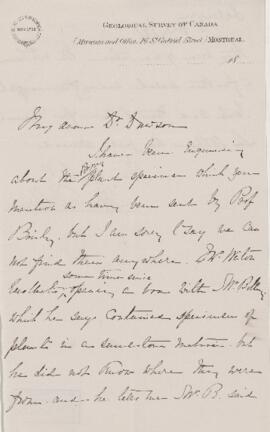 GEOLOGICAL SURVEY OF CANADA
(Museum and Office, 76 St Gabriel Street) MONTREAL
18
My dear Dr Dawson
I have been enquiring
about the plant specimens which you
mention as having been sent by Prof
Bailey, but I am sorry to say we can
not find them anywhere. Mr Weston
some time since
recollects opening a box with Mr
which he says contained specimens of
plants in a sandstone matrix, but
he did not know where they were
from and he tells me Mr B. said